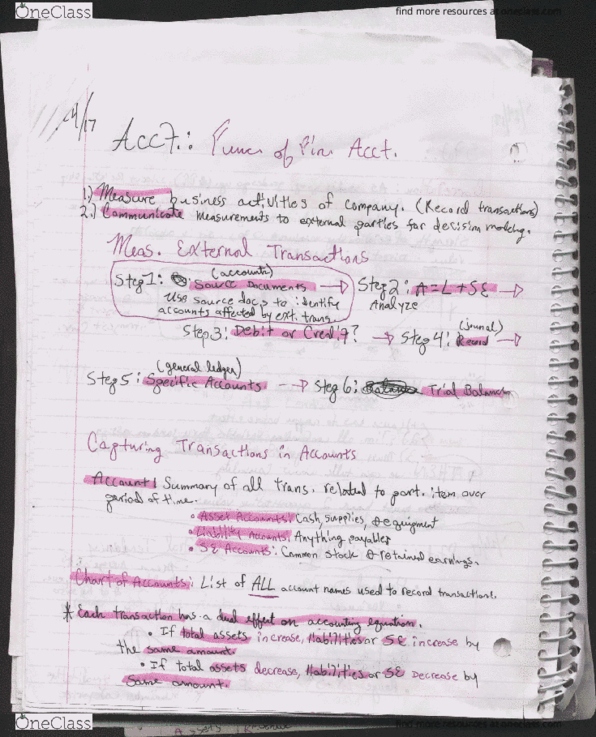 OneClass
find more resources at oneclass.com
4/17
Acct.: Func of Fin. Acct.
1.) Measure business activities of company. (Record transactions)
2.) Communicate measurements to external parties for decision making.
Meas. External Transactions
(accounts)
Step 1: Source Documents → Step 2: A=L+SE →
Use source docs to identify Analyze
accounts affected by ext. trans.
Step 3: Debit or Credit? → Step 4: Record →
(jrunal)
(general ledger)
Step 5: Specific Accounts --> Step 6: Trial Balance
Capturing Transactions in Accounts
Account: Summary of all trans. related to part. item over
period of time.
• Asset Accounts: Cash, supplies, & equipment
• Liability Accounts: Anything payables
• SE Accounts: Common Stock & retained earnings.
Chart of Accounts: List of ALL account names used to record transactions.
* Each transaction has a dual effect on accounting equation.
• If total assets increase, liabilities or SE increase by
the same amount.
• If total assets decrease, liabilities or SE decrease by
same amount.
OneClass
find more resources at oneclass.com